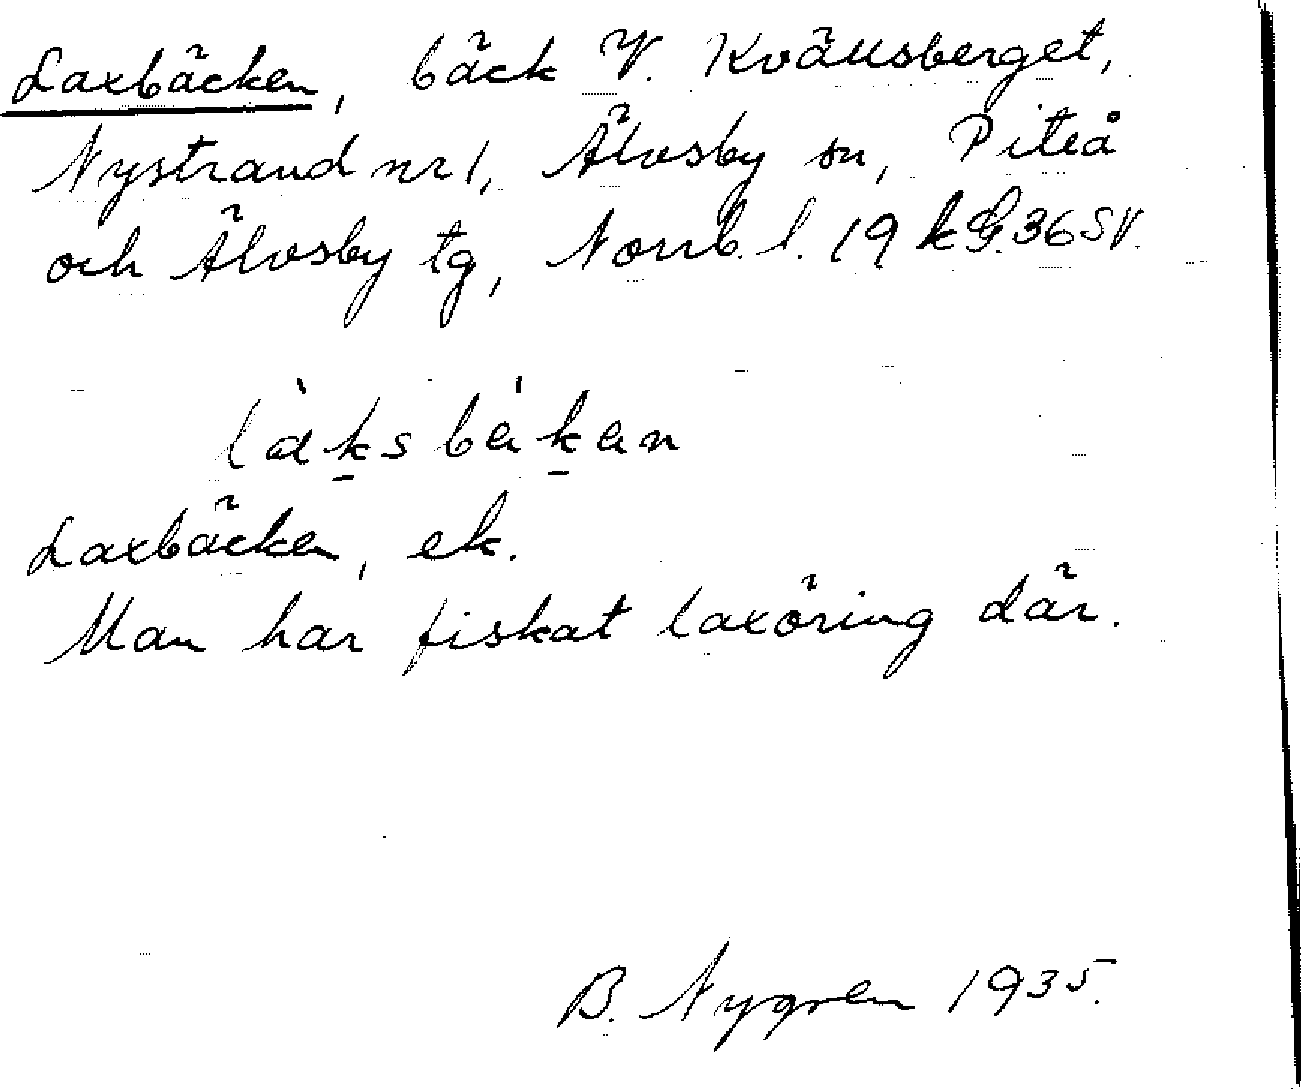 Laxbäcken, bäck V. Kvällsberget,
Nystrand nr 1, Älvsby sn, Piteå
och Älvsby tg, Norrb. l. 19 k G. 36 SV.
làksbákan
Laxbäcken, ek.
Man har fiskat laxöring där.
B. Nygren 1935.